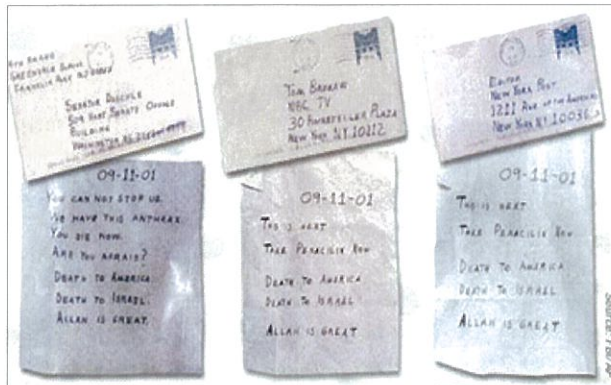 4TH GRADE
GREENDALE SCHOOL
FRANKLIN PARK NJ 08852
SENATOR DASCHLE
509 HART SENATE OFFICE
BUILDING
WASHINGTON
09-11-01
YOU CAN NOT STOP US.
WE HAVE THIS ANTHRAX.
YOU DIE NOW.
ARE YOU AFRAID?
DEATH TO AMERICA.
DEATH TO ISRAEL.
ALLAH IS GREAT.
TOM BROKAW
NBC TV
30 ROCKEFELLER PLAZA
NEW YORK NY 10112
09-11-01
THIS IS NEXT
TAKE PENACILIN NOW
DEATH TO AMERICA
DEATH TO ISRAEL
ALLAH IS GREAT
EDITOR
NEW YORK POST
1211 AVE. OF THE AMERICAS
NEW YORK NY 10036
09-11-01
THIS IS NEXT
TAKE PENACILIN NOW
DEATH TO AMERICA
DEATH TO ISRAEL
ALLAH IS GREAT
Source: FBI/AP